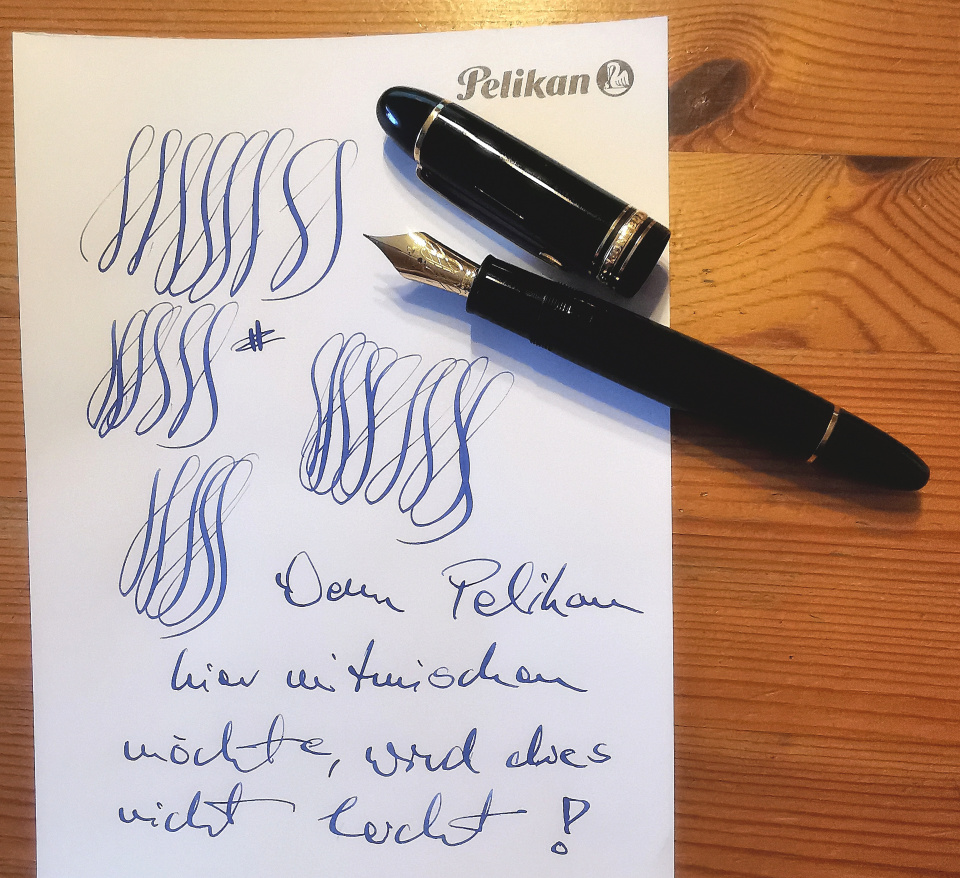 Pelikan
#
Wenn Pelikan
hier mitmischen
möchte, wird dies
nicht leicht!